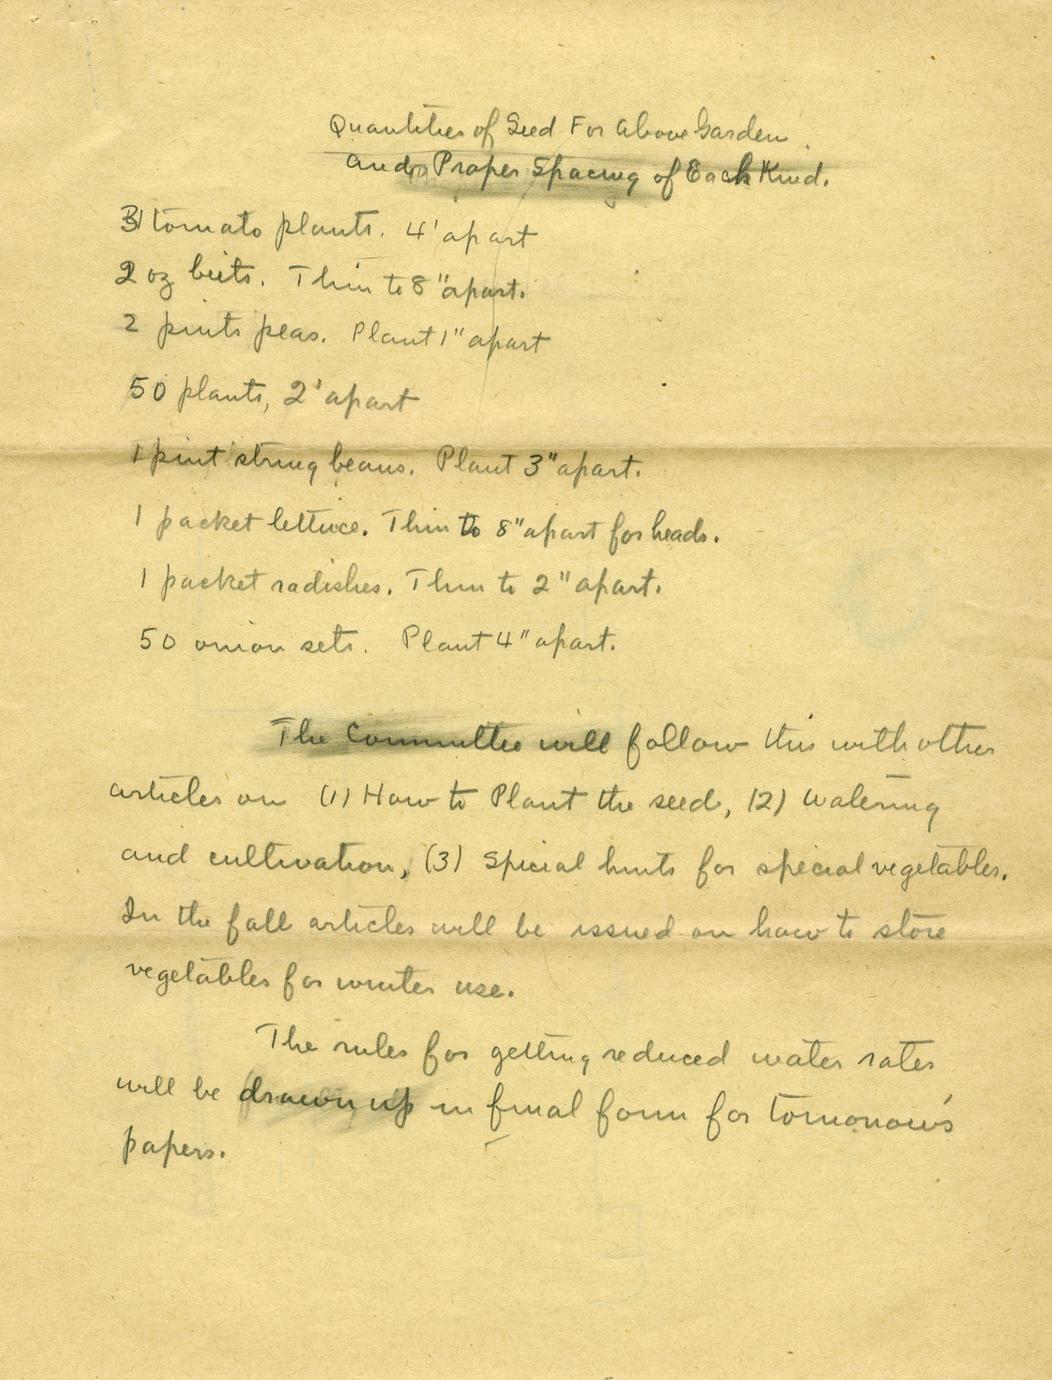 Quantities of Seed For Above Garden
and Proper Spacing of Each Kind.
31 tomato plants. 4' apart
2 oz beets. Thin to 8" apart.
2 pints peas. Plant 1" apart
50 plants, 2' apart
1 pint string beans. Plant 3" apart.
1 packet lettuce. Thin to 8" apart for heads.
1 packet radishes. Thin to 2" apart.
50 onion sets. Plant 4" apart.
The Committee will follow this with other
articles on (1) How to Plant the seed, (2) Watering
and cultivation, (3) Special hints for special vegetables.
In the fall articles will be issued on how to store
vegetables for winter use.
The rules for getting reduced water rates
will be drawn up in final form for tomorrow's
papers.